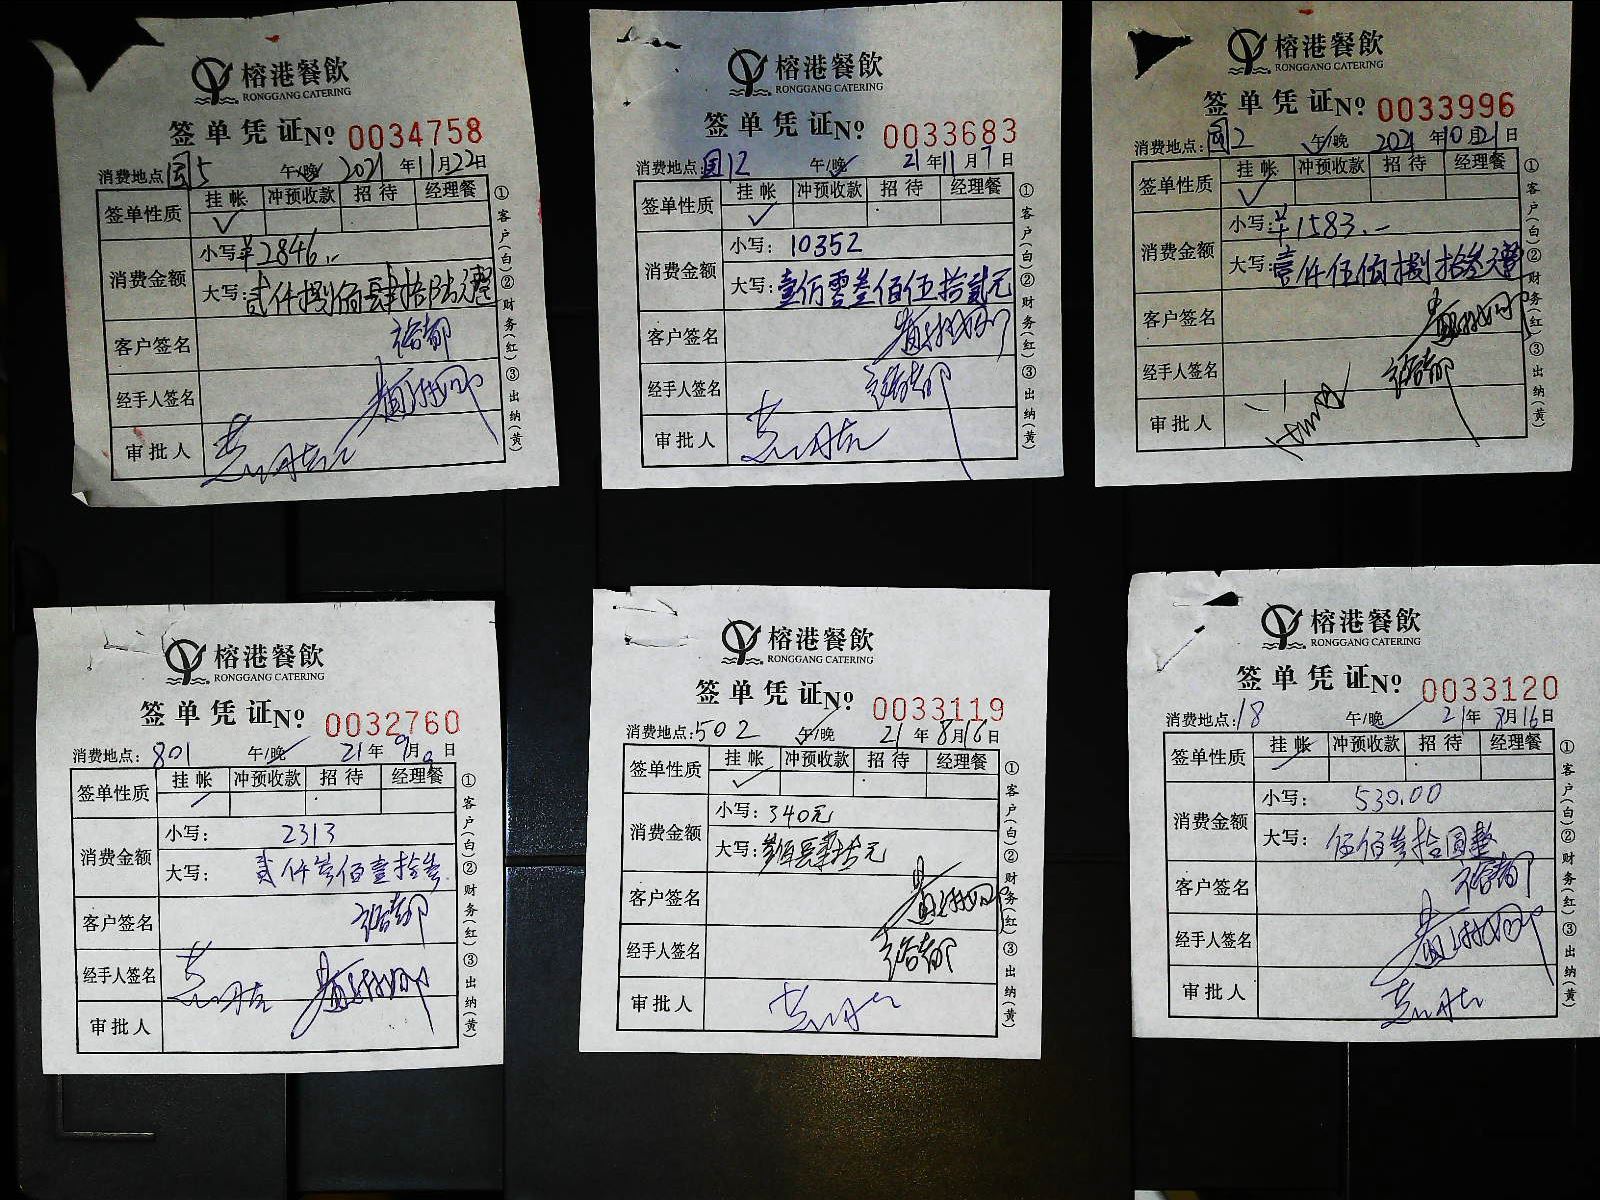 榕港餐飲
RONGGANG CATERING
签单凭证 Nº 0034758
消费地点: 园5 午/晚 2021年11月22日
签单性质 挂帐 冲预收款 招待 经理餐
✓
消费金额 小写: ¥2846.-
大写: 贰仟捌佰肆拾陆元整
客户签名
经手人签名
审批人
①客户(白)②财务(红)③出纳(黄)
榕港餐飲
RONGGANG CATERING
签单凭证 Nº 0033683
消费地点: 园12 午/晚 21年11月7日
签单性质 挂帐 冲预收款 招待 经理餐
✓
消费金额 小写: 10352
大写: 壹万零叁佰伍拾贰元
客户签名
经手人签名
审批人
①客户(白)②财务(红)③出纳(黄)
榕港餐飲
RONGGANG CATERING
签单凭证 Nº 0033996
消费地点: 园2 午/晚 2021年10月21日
签单性质 挂帐 冲预收款 招待 经理餐
✓
消费金额 小写: ¥1583.-
大写: 壹仟伍佰捌拾叁元整
客户签名
经手人签名
审批人
①客户(白)②财务(红)③出纳(黄)
榕港餐飲
RONGGANG CATERING
签单凭证 Nº 0032760
消费地点: 801 午/晚 21年9月9日
签单性质 挂帐 冲预收款 招待 经理餐
消费金额 小写: 2313
大写: 贰仟叁佰壹拾叁
客户签名
经手人签名
审批人
①客户(白)②财务(红)③出纳(黄)
榕港餐飲
RONGGANG CATERING
签单凭证 Nº 0033119
消费地点: 502 午/晚 21年8月16日
签单性质 挂帐 冲预收款 招待 经理餐
✓
消费金额 小写: 340元
大写: 叁佰肆拾元
客户签名
经手人签名
审批人
①客户(白)②财务(红)③出纳(黄)
榕港餐飲
RONGGANG CATERING
签单凭证 Nº 0033120
消费地点: 18 午/晚 21年8月16日
签单性质 挂帐 冲预收款 招待 经理餐
消费金额 小写: 530.00
大写: 伍佰叁拾圆整
客户签名
经手人签名
审批人
①客户(白)②财务(红)③出纳(黄)